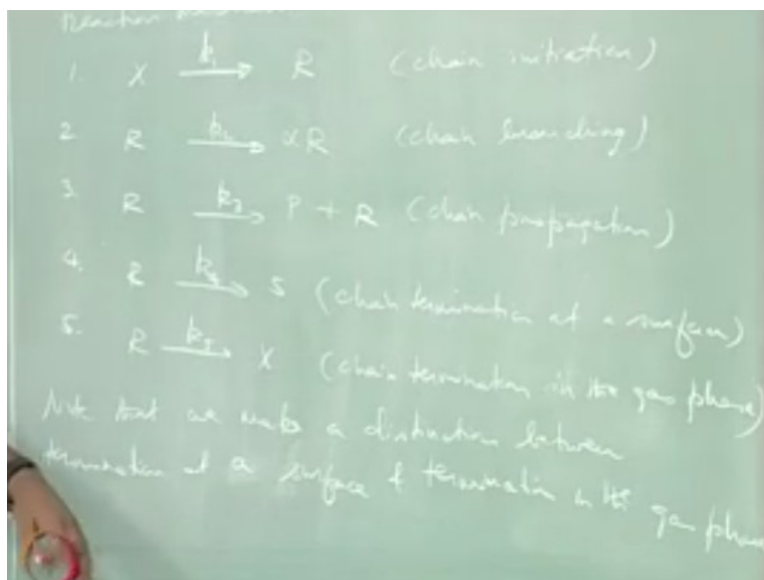 Reaction
1. X k₁→ R (chain initiation)
2. R k₂→ αR (chain branching)
3. R k₃→ P + R (chain propagation)
4. R k₄→ S (chain termination at a surface)
5. R k₅→ X (chain termination in the gas phase)
Note that we make a distinction between
termination at a surface & termination in the gas phase